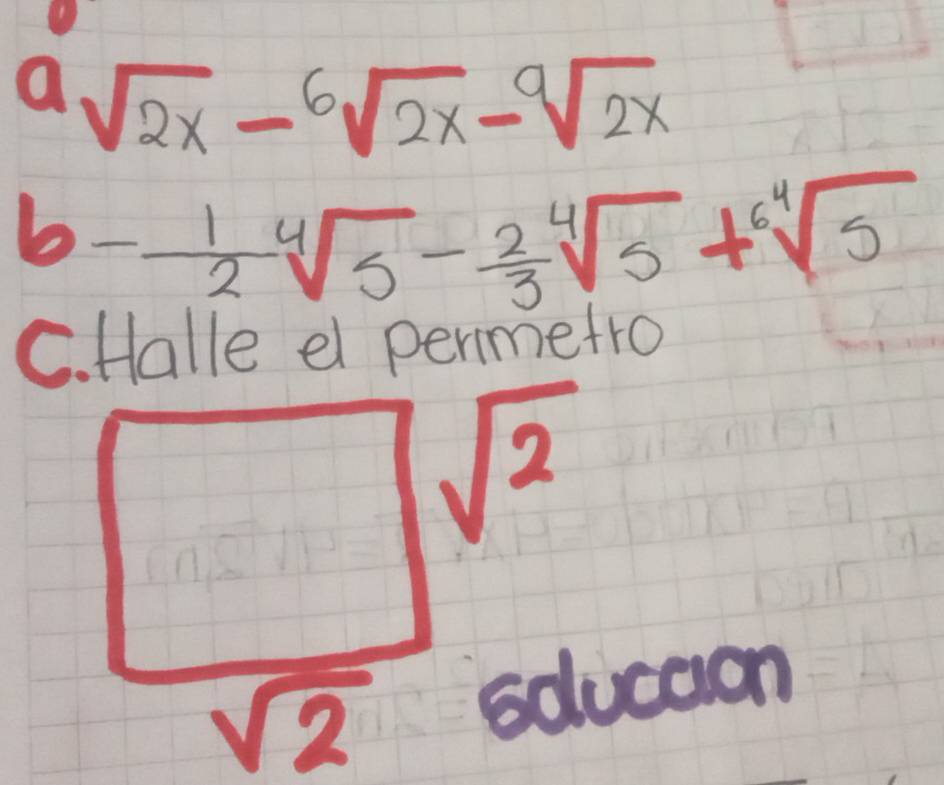 a √2x - 6√2x - 9√2x
b - 1/2 ⁴√5 - 2/3 ⁴√5 + 6 ⁴√5
C. Halle el perimetro
√2
√2
soluccion